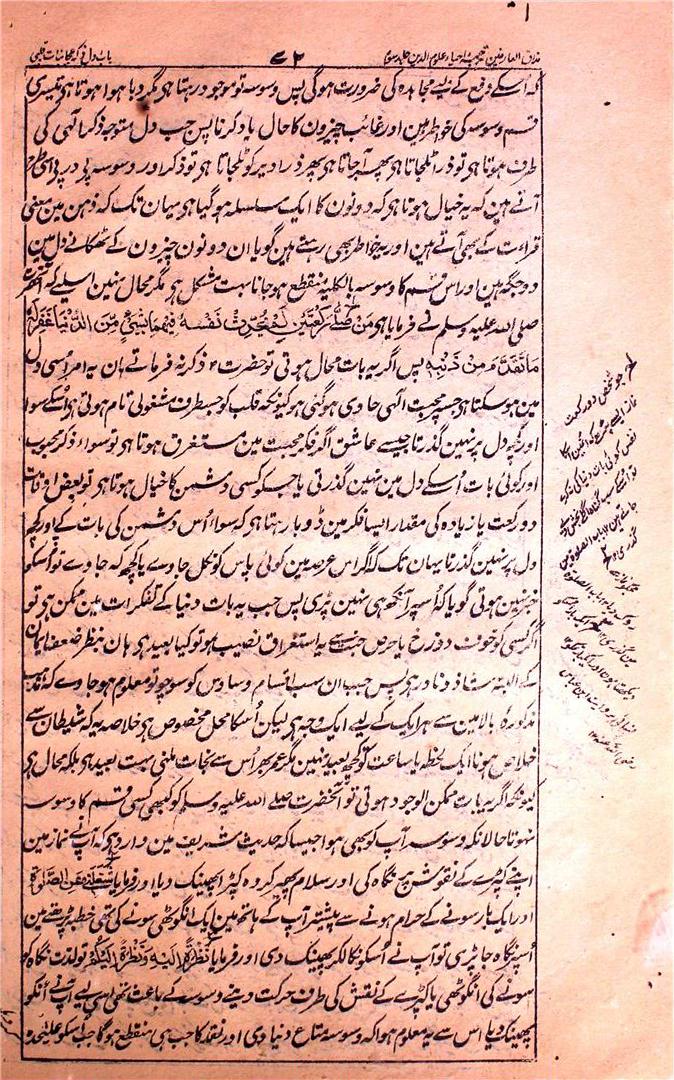 مذاق العارفین ترجمہ احیاء علوم الدین جلد سوم
۷۲
باب دل ذکر عجائبات قلبی
کہ اسکے دفع کے لیے مجاہدہ کی ضرورت ہوگی پس وسوسہ تو موجود رہتا ہی مگر دبا ہوا ہوتا ہی تیسری
قسم وسوسہ کی خواطر ہین اور غائب چیزون کا حال یاد کرنا پس جب دل متوجہ ذکر الہی کی
طرف ہوتا ہی تو ذرا ٹلجاتا ہی پھر آجاتا ہی پھر ذرا دیر کو ٹلجاتا ہی تو ذکر اور وسوسہ پی در پی اسی طرح
آتے ہین کہ یہ خیال ہوتا ہی کہ دونون کا ایک سلسلہ ہوگیا ہی یہان تک کہ ذہن مین معنی
قراءت کے بھی آتے ہین اور یہ خواطر بھی رہتے ہین گویا ان دونون چیزون کے ٹھکانے دل مین
دو جگہ ہین اور اس قسم کا وسوسہ بالکلیہ منقطع ہوجانا بہت مشکل ہی مگر محال نہین اسلیے کہ آنحضرت
صلی اللہ علیہ وسلم نے فرمایا ہی مَن صَلَّى رَكْعَتَيْنِ لَمْ يُحَدِّثْ نَفْسَهُ فِيهِمَا بِشَيْءٍ مِنَ الدُّنْيَا غُفِرَ لَهُ
مَا تَقَدَّمَ مِنْ ذَنْبِهِ پس اگر یہ بات محال ہوتی تو حضرت ذکر نہ فرماتے ہان یہ امر اسی دل
مین ہوسکتا ہی جسپر محبت الہی حاوی ہوگئی ہو کیونکہ قلب کو جسطرف مشغولی تام ہوتی ہی اسکے سوا
اور کچھ دل پر نہین گذرتا جیسے عاشق اگر فکر محبت مین مستغرق ہوتا ہی تو سواء ذکر محبوب
اور کوئی بات اسکے دل مین نہین گذرتی یا جب کو کسی دشمن کا خیال ہوتا ہی تو بعض اوقات
دو رکعت یا زیادہ کی مقدار ایسا فکر مین ڈوبا رہتا ہی کہ سوا اس دشمن کی بات کے اور کچھ
دل پر نہین گذرتا یہان تک کہ اگر اس عرصہ مین کوئی پاس کو نکل جاوے یا کچھ کہ جاوے تو اسکو
خبر نہین ہوتی گویا کہ اسپر آنکھ ہی نہین پڑی پس جب یہ بات دنیا کے تفکرات مین ممکن ہی تو
اگر کسی کو خوف دوزخ یا حرص جنت سے یہ استغراق نصیب ہو تو کیا بعید ہی ہان بنظر ضعف ایمان
کے البتہ شاذ و نادر ہی پس جب ان سب اقسام وساوس کو سوچو تو معلوم ہوجاوے کہ مذاہب
مذکورہ بالا مین سے ہر ایک کے لیے ایک وجہ ہی لیکن اسکا محل مخصوص ہی خلاصہ یہ کہ شیطان سے
خلاص ہونا ایک لحظہ یا ساعت کو کچھ بعید نہین مگر عمر بھر اس سے نجات ملنی بہت بعید ہی بلکہ محال ہی
کیونکہ اگر یہ بات ممکن الوجود ہوتی تو آنحضرت صلے اللہ علیہ وسلم کو کبھی کسی قسم کا وسوسہ
نہوتا حالانکہ وسوسہ آپ کو بھی ہوا جیسا کہ حدیث شریف مین وارد ہی کہ آپ نے نماز مین
اپنے کپڑے کے نقوش پر نگاہ کی اور سلام پھیر کر وہ کپڑا پھینک دیا اور فرمایا شَغَلَنِي عَنِ الصَّلٰوةِ
اور ایک بار سونے کے حرام ہونے سے پیشتر آپ کے ہاتھ مین ایک انگوٹھی سونے کی تھی خطبہ پڑھتے مین
اسپر نگاہ جا پڑی تو آپ نے اسکو نکالکر پھینک دی اور فرمایا نَظْرَةٌ اِلَيْهِ وَنَظْرَةٌ اِلَيْكُمْ تو لذت نگاہ کو
سونے کی انگوٹھی یا کپڑے کے نقش کی طرف حرکت دینے وسوسہ کے باعث تھی اسی لیے آپ نے انکو
پھینک دیا اس سے یہ معلوم ہوا کہ وسوسہ متاع دنیاوی اور نقد کا جب ہی منقطع ہوگا جب اسکو علیحدہ
جو شخص دو رکعت